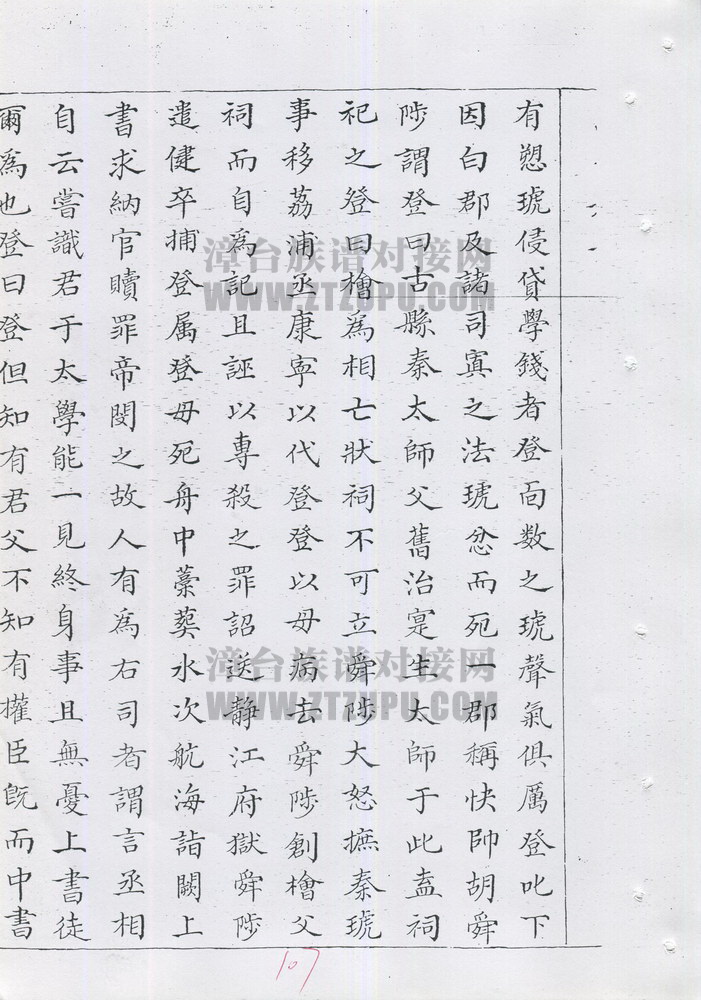 有愬琥侵貸學錢者登面数之琥聲氣俱厲登叱下
因白郡及諸司寘之法琥忿而死一郡稱快帥胡舜
陟謂登曰古縣秦太師父舊治寔生太師于此盍祠
祀之登曰檜為相亡狀祠不可立舜陟大怒摭秦琥
事移荔浦丞康寧以代登登以母病去舜陟創檜父
祠而自為記且誣以專殺之罪詔送静江府獄舜陟
遣健卒捕登属登母死舟中藁葬水次航海詣闕上
書求納官贖罪帝閔之故人有為右司者謂言丞相
自云嘗識君于太學能一見終身事且無憂上書徒
爾為也登曰登但知有君父不知有權臣既而中書
漳台族谱对接网
WWW.ZTZUPU.COM
漳台族谱对接网
WWW.ZTZUPU.COM
107